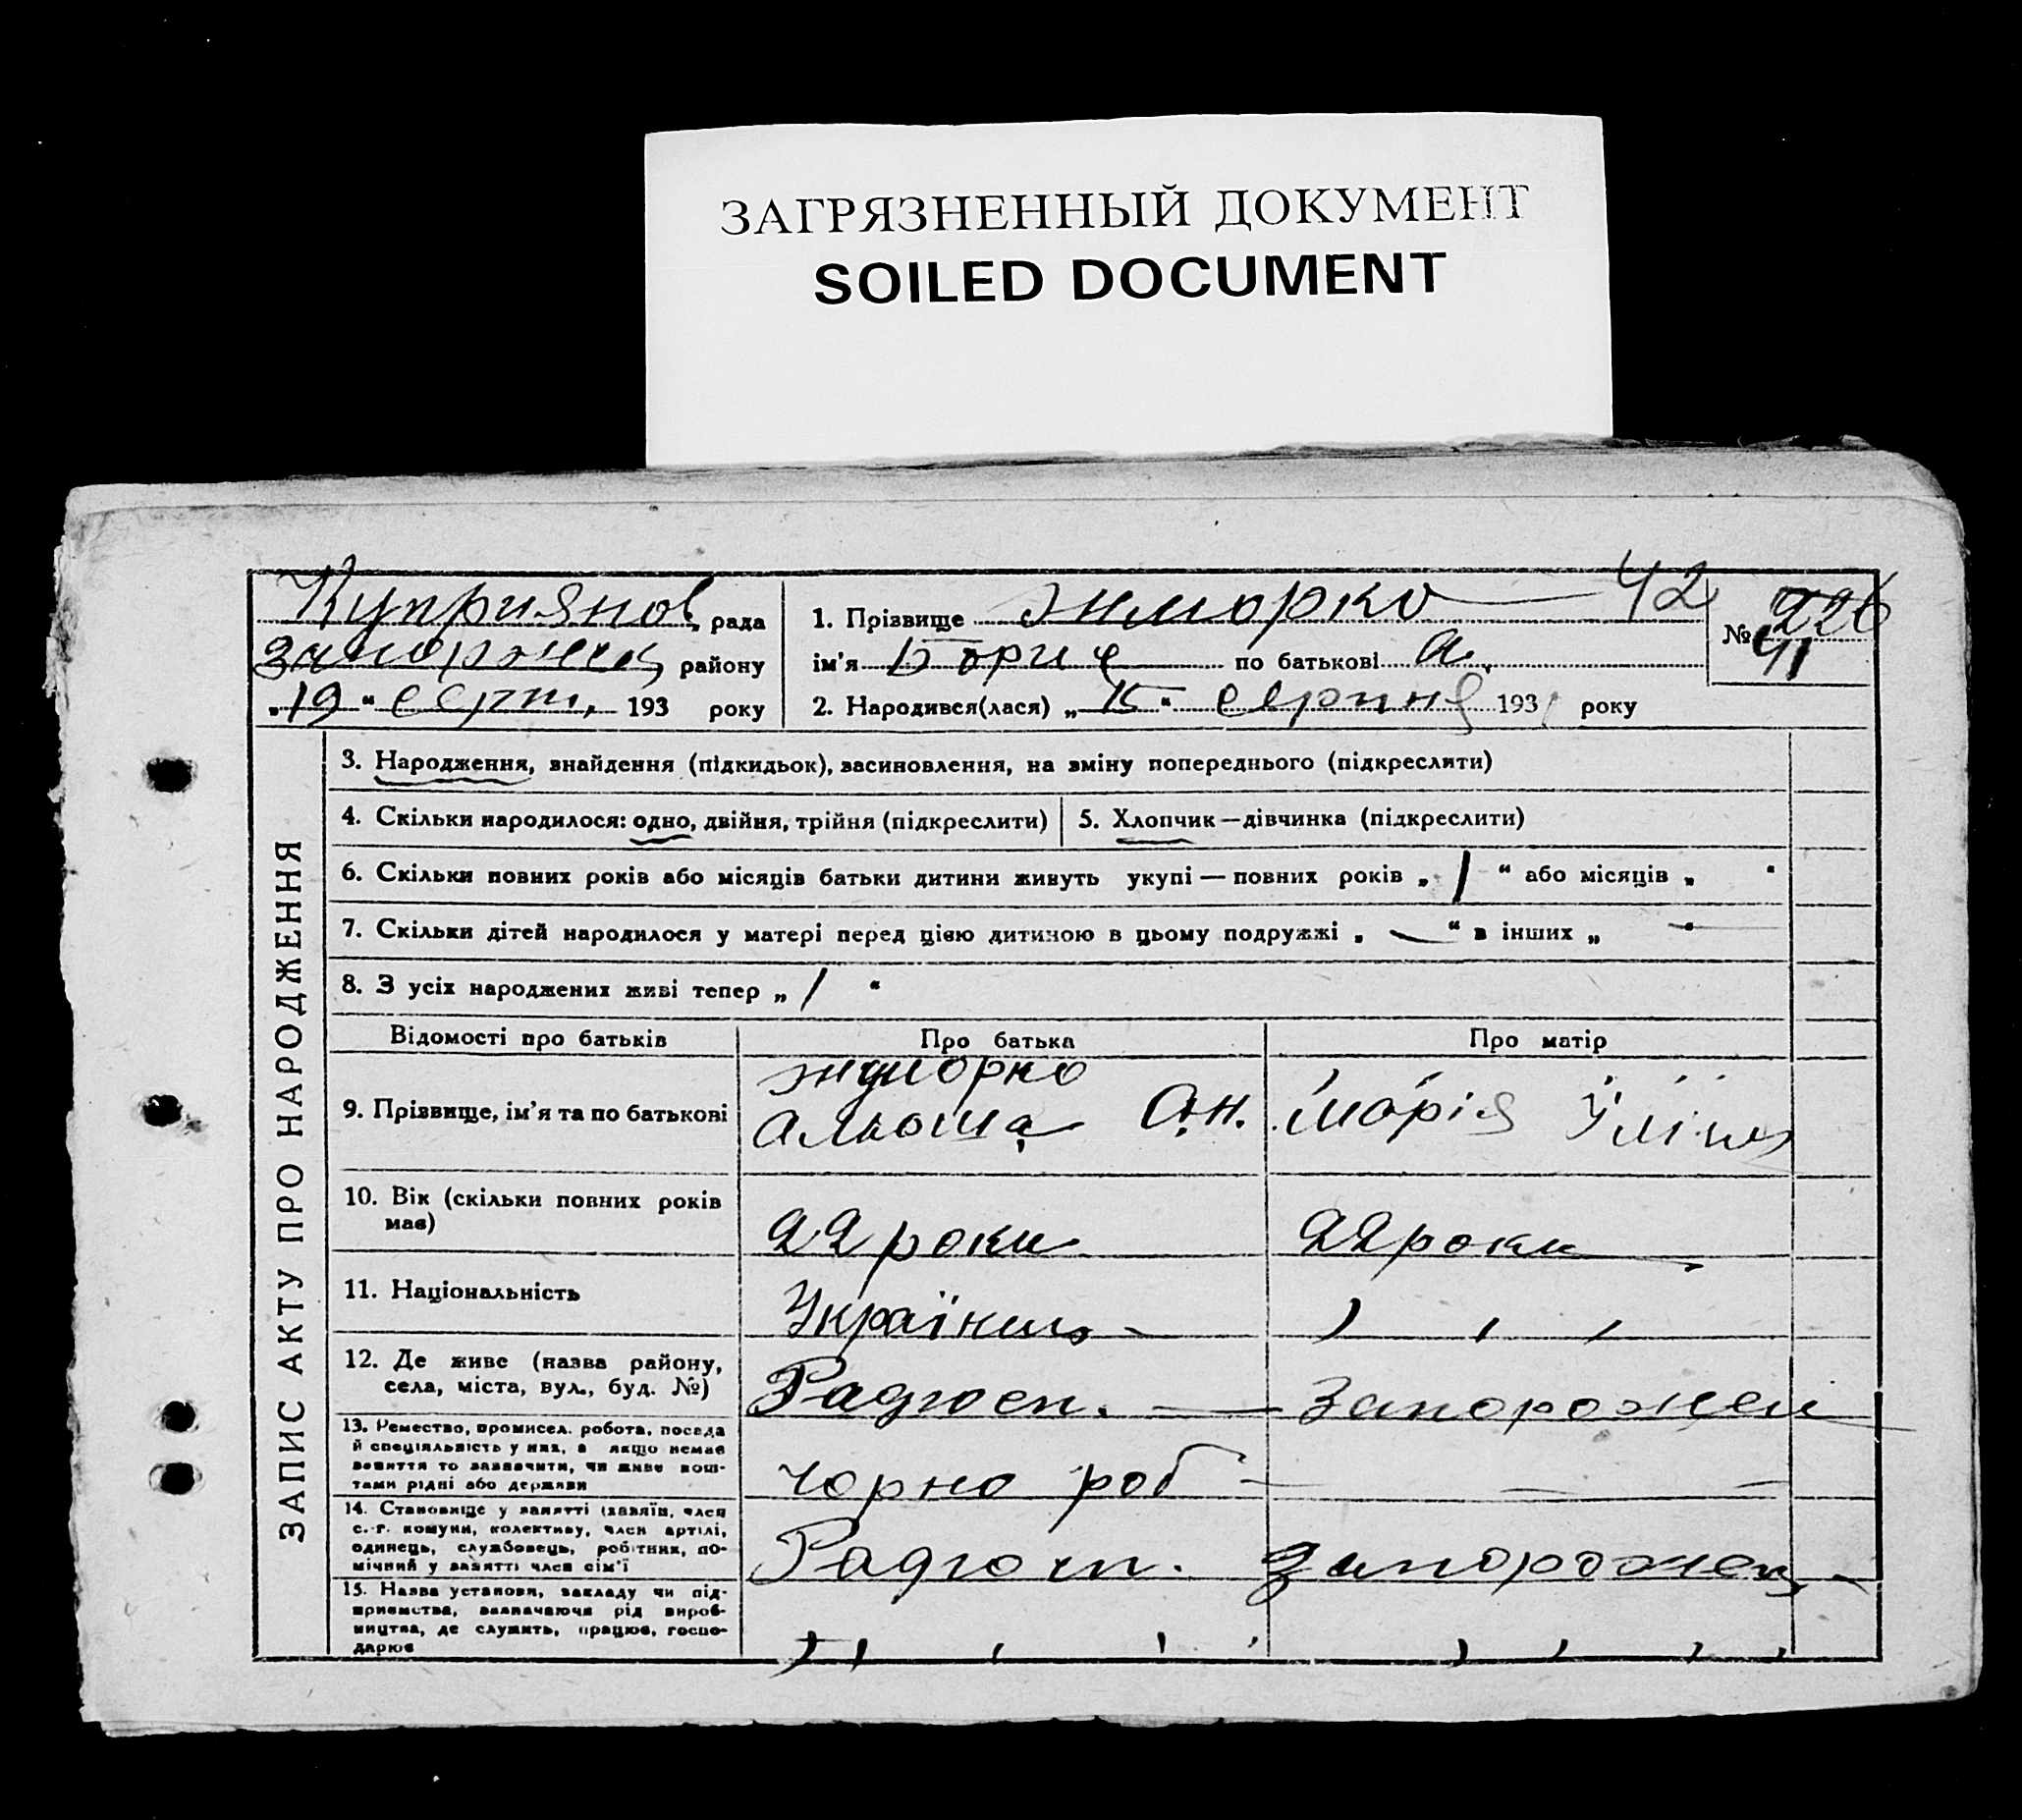 ЗАГРЯЗНЕННЫЙ ДОКУМЕНТ
SOILED DOCUMENT
Куприянов, рада
району
„19“ серпн, 193 року
1. Прізвище 42
ім'я Борис по батькові А.
2. Народився(лася) „15“ серпня 193 року
№ 226
41
ЗАПИС АКТУ ПРО НАРОДЖЕННЯ
3. Народження, внайдення (підкидьок), васиновлення, на вміну попереднього (підкреслити)
4. Скільки народилося: одно, двійня, трійня (підкреслити)
5. Хлопчик—дівчинка (підкреслити)
6. Скільки повних років або місяців батьки дитини живуть укупі — повних років „1“ або місяців „ “
7. Скільки дітей народилося у матері перед цією дитиною в цьому подружжі „—“ в інших „—“
8. З усіх народжених живі тепер „1“
Відомості про батьків Про батька Про матір
9. Прізвище, ім'я та по батькові
Альоша О.Н. Марія
10. Вік (скільки повних років має) 22 роки 22 роки
11. Національність Українць - , , ,
12. Де живе (назва району, села, міста, вул., буд. №) Радгосп. — Запорожец
13. Ремество, промисел, робота, посада й спеціяльність у них, а якщо немає заняття то зазначити, чи живе коштами рідні або держави
Чорно роб - — —
14. Становище у занятті (хазяїн, член с.-г. комуни, колективу, член артілі, одинець, службовець, робітник, помічний у занятті член сім'ї
Радгосп. Запорожец -
15. Назва установи, закладу чи підприємства, зазначаючи рід виробництва, де служить, працює, господарює
, , , , , , , , ,